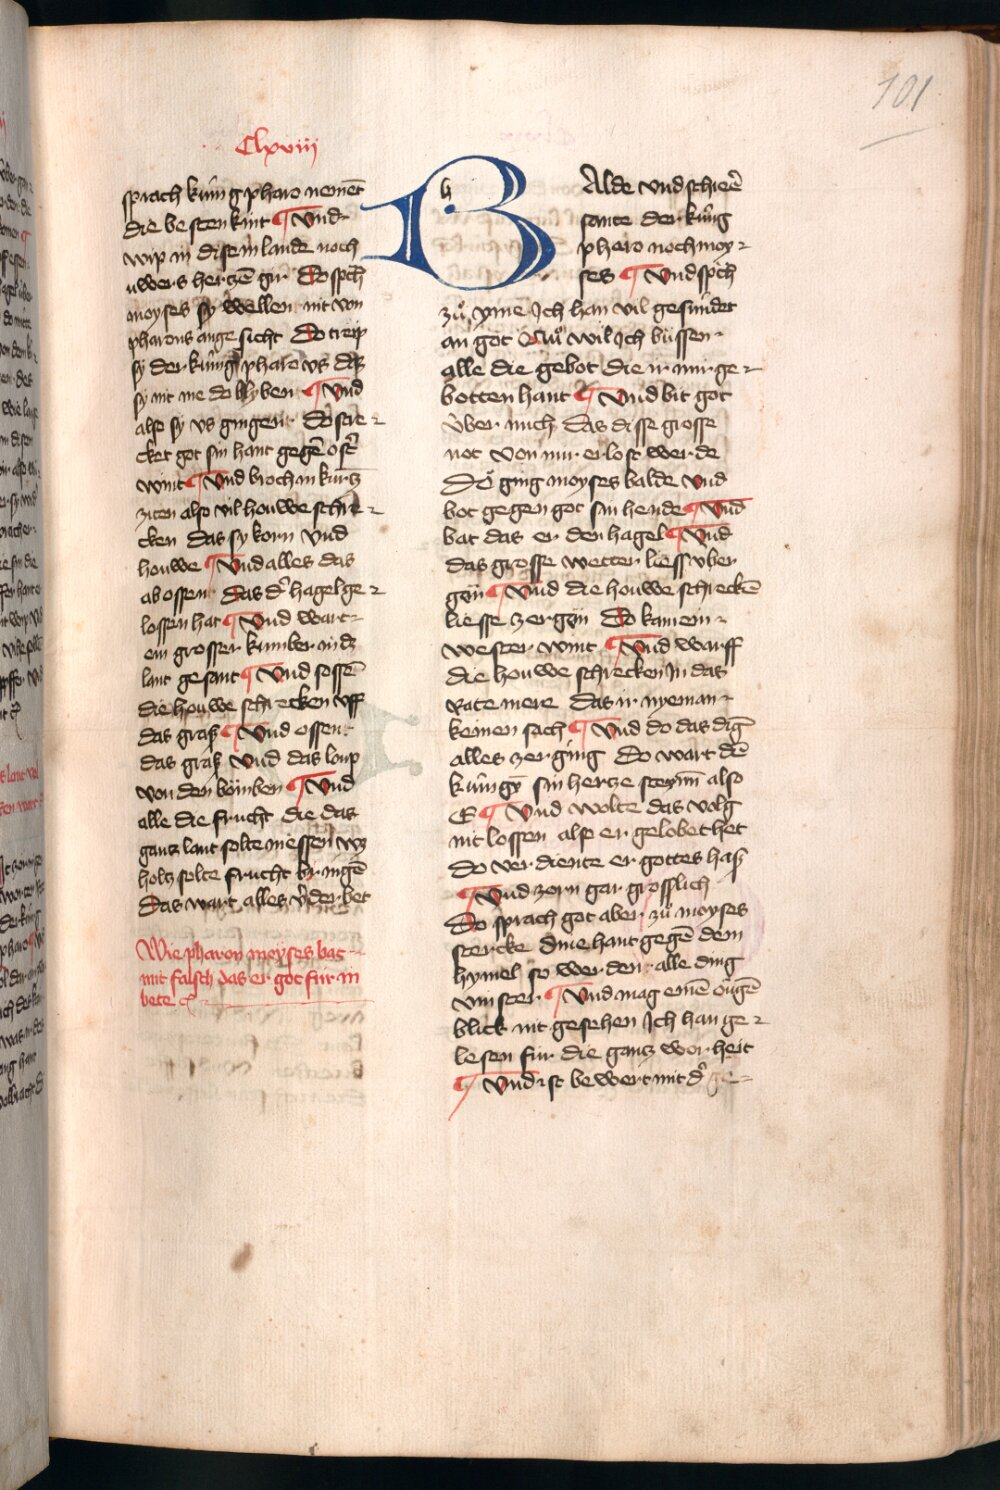 101
Clxviii
sprach kúnig pharo nemēt
die besten kint ¶ Vnd
wip in disem lande noch
uwers hertzē gir Do spch
moyses sy wellen nit von
pharons angesicht Do treip
sy der kúnig pharo vs das
sy nit me do blyben ¶ Vnd
also sy vs gingent Do stre
cket got sin hant gegē ostr
wint ¶ Vnd broch in kurtz
ziten also vil houwe schre
cken das sy korn vnd
houwe ¶ Vnd alles das
ab ossen Das dʾ hagel ge
lossen hat ¶ Vnd wart
ein grosser kumber in dz
lant gesant ¶ Vnd sossē
die houwe schrecken vff
das graß ¶ Vnd ossen
das graß vnd das loup
von den bömben ¶ Vnd
alle die frucht die das
gantz lant solte niessen wz
holtz solte frucht bringē
Das wart alles vʾderbet
Wie pharon moyses bat
mit falsch das er got für in
bete
h
BAlde vnd schierē
sante der kúnig
pharo noch moy
ses ¶ Vnd spch
zů yme Ich han vil gesúndet
an got Nů wil Ich bússen
alle die gebot die ir mir ge
botten hant ¶ Vnd bit got
über mich das disse grosse
not von mir erlost werde
Do ging moyses balde vnd
bot gegen got sin hende ¶ Vnd
bat das er den hagel ¶ Vnd
das grosse wetter liess vber
gön ¶ Vnd die houwe schreckē
liesse zergön Do kam ein
wester wint ¶ Vnd warff
die houwe schrecken In das
rate mere das ir nyeman
keinen sach ¶ Vnd do das dīg
alles zerging Do wart dē
kúnigē sin hertze steynin also
E ¶ Vnd wolte das volg
nit lossen also er gelobet het
do verdiente er gottes haß
¶ Vnd zorn gar grosslich
Do sprach got aber zů moyses
stercke dine hant gegē dem
hymel so werden alle ding
vinster ¶ Vnd mag einē ougē
blick nit gesehen Ich han ge
lesen für die gantz worheit
¶ Vnd ist bewert mit dʾ ge